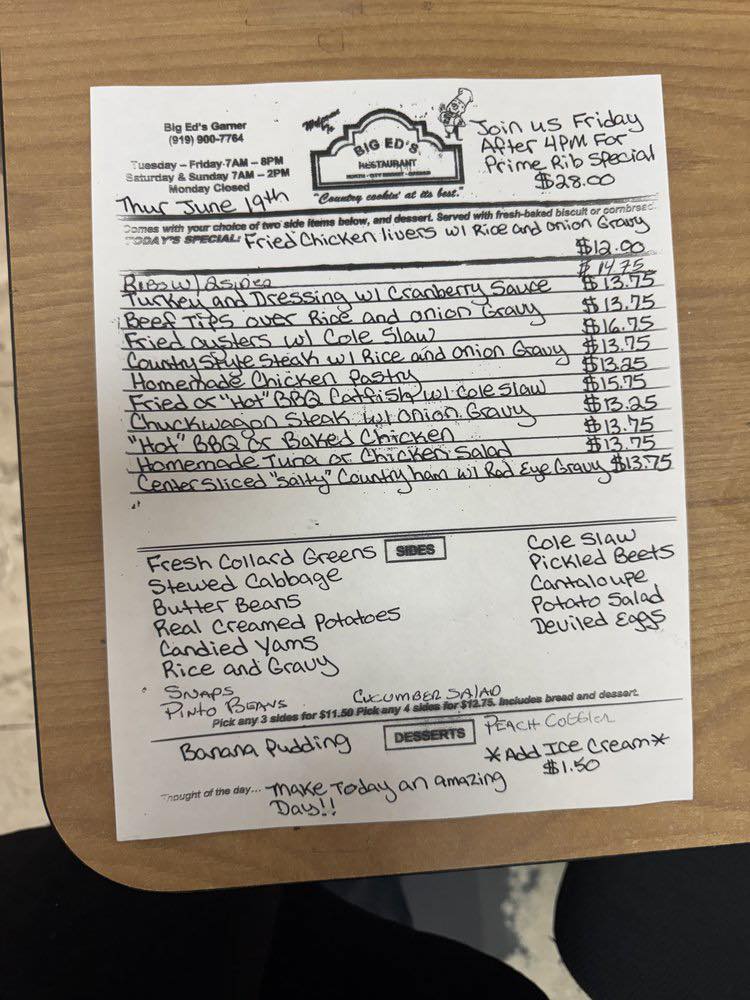 Big Ed's Garner
(919) 900-7764
Tuesday – Friday 7AM – 8PM
Saturday & Sunday 7AM – 2PM
Monday Closed
Thur June 19th
Welcome To
BIG ED'S
RESTAURANT
"Country cookin' at its best."
Join us Friday
After 4PM For
Prime Rib Special
$28.00
Comes with your choice of two side items below, and dessert. Served with fresh-baked biscuit or cornbread.
TODAY'S SPECIAL: Fried Chicken livers w/ Rice and Onion Gravy
$12.00
Ribs w/ 2 sides $14.75
Turkey and Dressing w/ Cranberry Sauce $13.75
Beef Tips over Rice and onion Gravy $13.75
Fried oysters w/ Cole Slaw $16.75
Country Style Steak w/ Rice and onion Gravy $13.75
Homemade Chicken Pastry $13.25
Fried or "Hot" BBQ Catfish w/ Cole Slaw $15.75
Chuckwagon Steak w/ onion Gravy $13.25
"Hot" BBQ or Baked Chicken $13.75
Homemade Tuna or Chicken Salad $13.75
Center Sliced "Salty" Country ham w/ Red Eye Gravy $13.75
SIDES
Fresh Collard Greens
Stewed Cabbage
Butter Beans
Real Creamed Potatoes
Candied Yams
Rice and Gravy
Snaps
Pinto Beans
Cucumber Salad
Cole Slaw
Pickled Beets
Cantaloupe
Potato Salad
Deviled Eggs
Pick any 3 sides for $11.50 Pick any 4 sides for $12.75. Includes bread and dessert.
DESSERTS
Banana Pudding
Peach Cobbler
*Add Ice Cream*
$1.50
Thought of the day... Make Today an amazing
Day!!